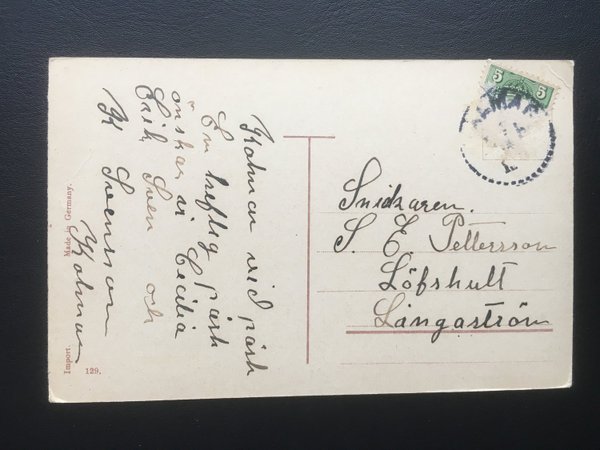 Kalmar vid påsk
En treflig påsk
önskar vi Cecilia
Erik Sven och
K Svensson
Kalmar
Snickaren.
S. E. Pettersson
Löfshult
Långaström
5 5
Made in Germany.
Import.
129.